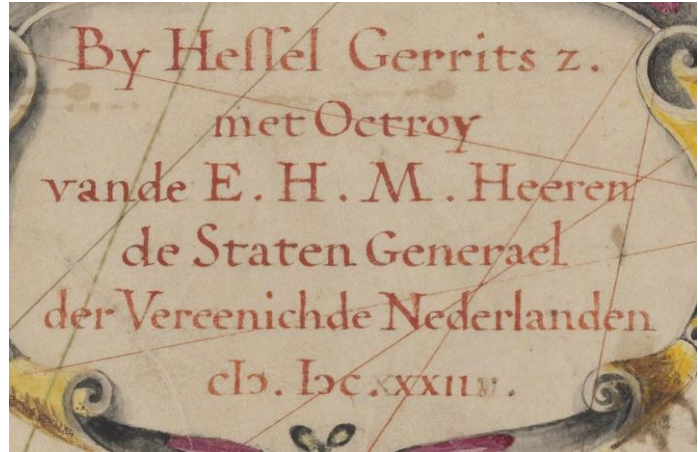 By Hessel Gerrits z.
met Octroy
vande E. H. M. Heeren
de Staten Generael
der Vereenichde Nederlanden